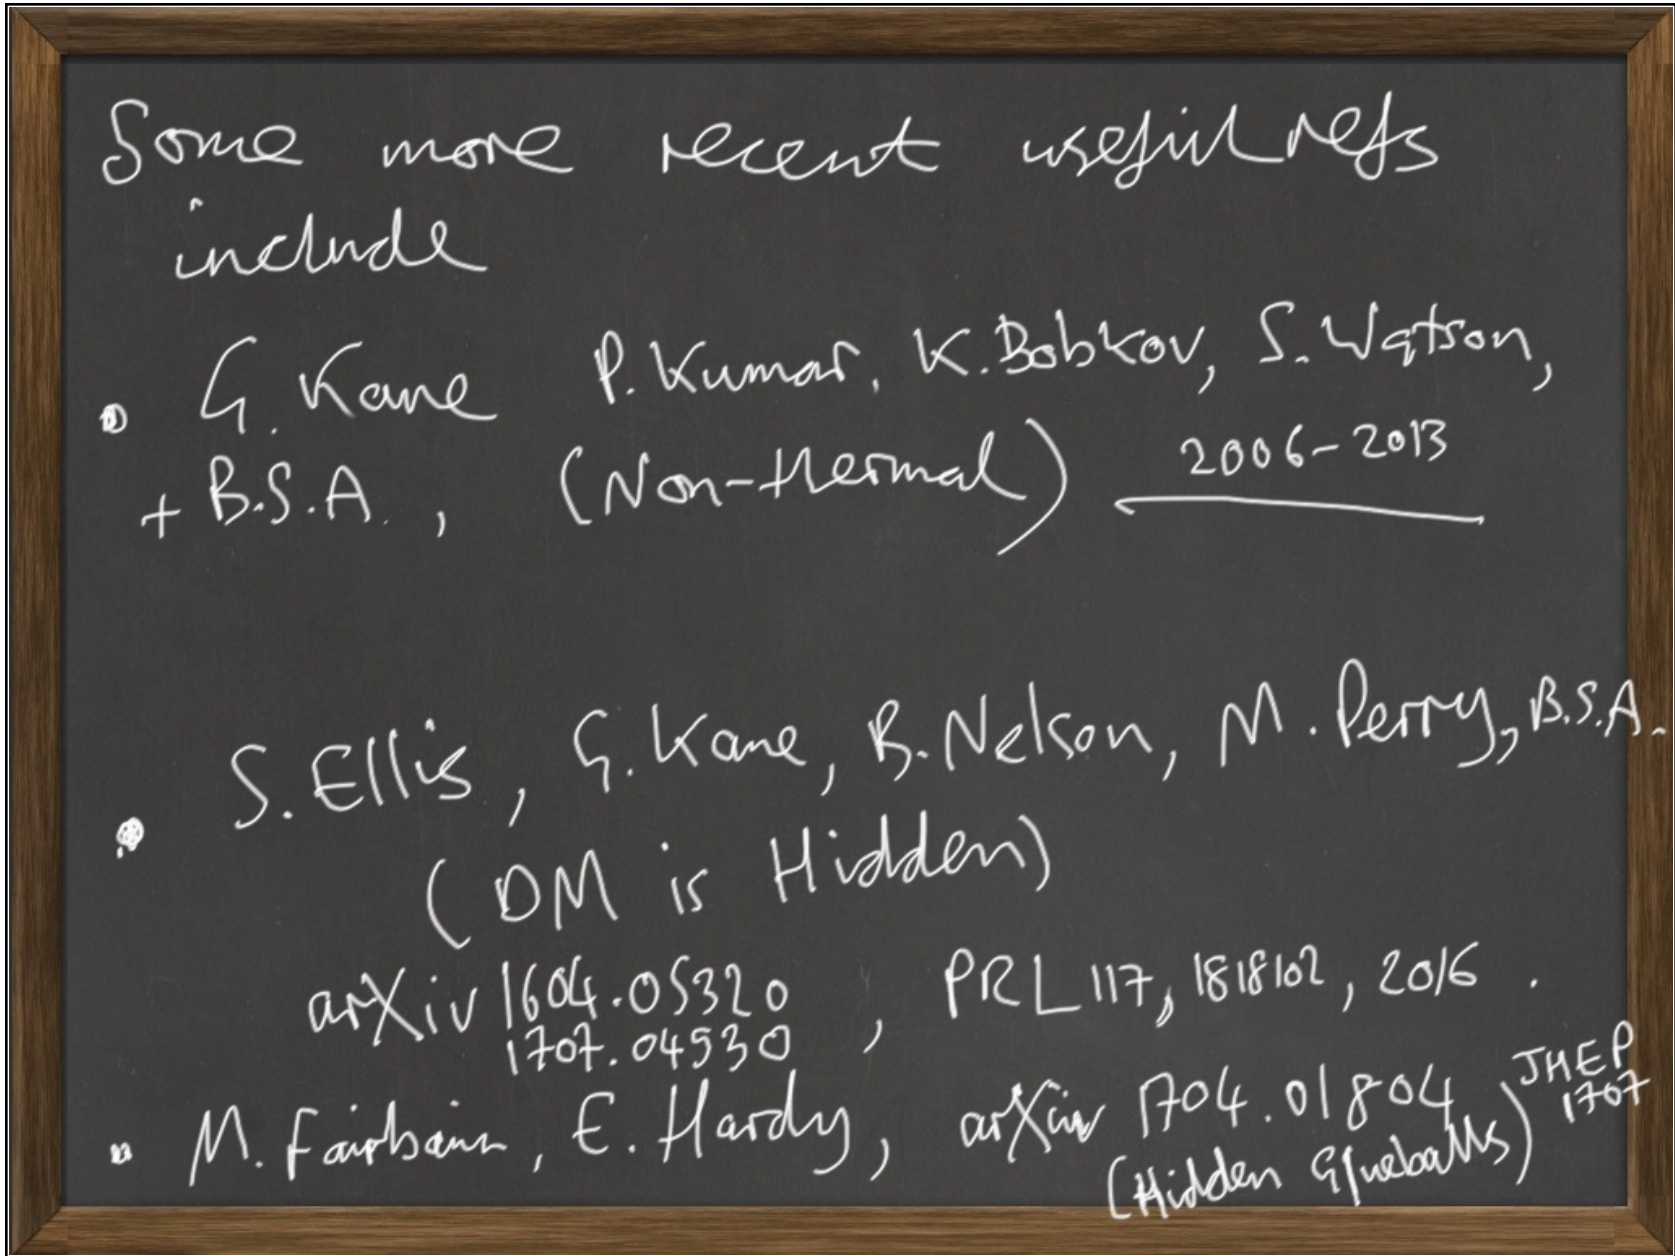 Some more recent useful refs
include
G. Kane P. Kumar, K. Bobkov, S. Watson,
+ B.S.A., (Non-thermal) 2006-2013
S. Ellis, G. Kane, B. Nelson, M. Perry, B.S.A.
(DM is Hidden)
arXiv 1604.05320, PRL 117, 1818102, 2016.
1707.04530
M. Fairbairn, E. Hardy, arXiv 1704.01804 JHEP
1707
(Hidden Glueballs)